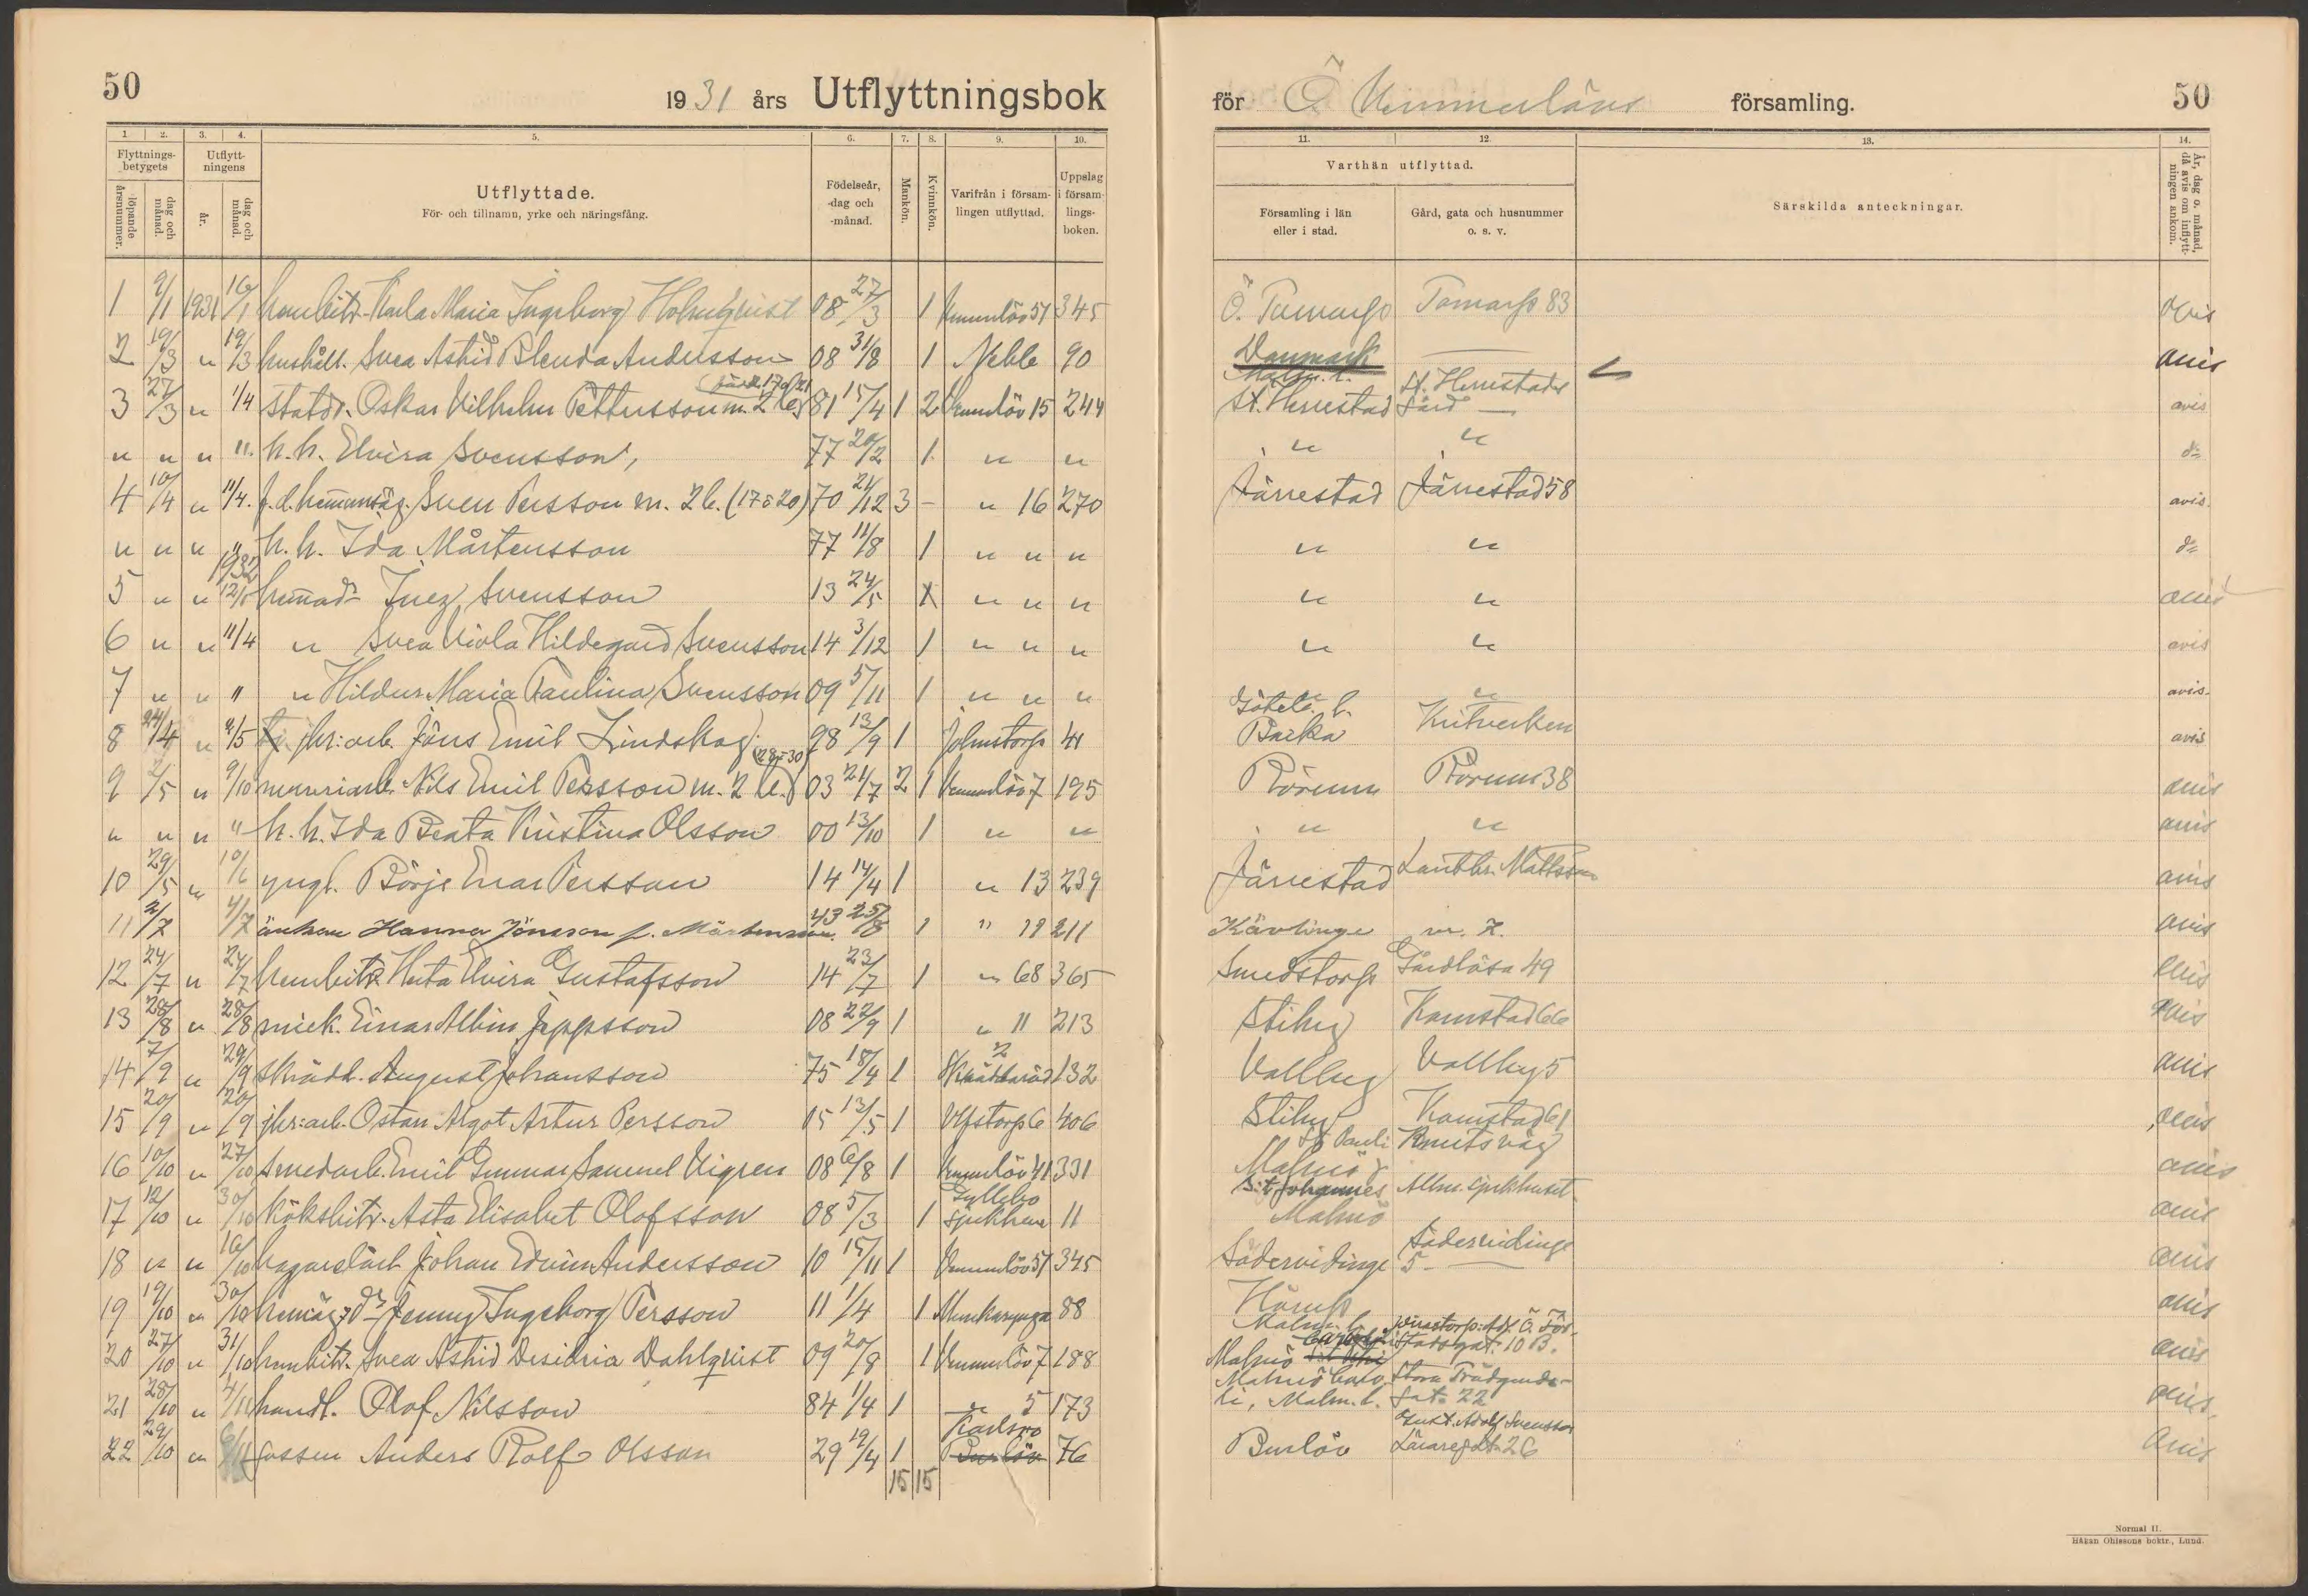 50
1931 års Utflyttningsbok
för Ö Vemmerlövs församling.
50
1. 2. 3. 4. 5. 6. 7. 8. 9. 10. 11. 12. 13. 14.
Flyttningsbetygets
löpande årsnummer.
dag och månad.
Utflyttningens
år.
dag och månad.
Utflyttade.
För- och tillnamn, yrke och näringsfång.
Födelseår, -dag och -månad.
Mankön.
Kvinnkön.
Varifrån i församlingen utflyttad.
Uppslag i församlingsboken.
Varthän utflyttad.
Församling i län eller i stad.
Gård, gata och husnummer o. s. v.
Särskilda anteckningar.
År, dag o. månad, då avis om inflyttningen ankom.
1 9/1 1931 16/1 Karla Maria Ingeborg Holmqvist 08 27/3 1 Vemmlöv 51 345 Ö. Tommarp Tomarp 83 avis
2 19/3 " 19/3 hushåll. Svea Astrid Blenda Andersson 08 31/8 1 Neble 90 Danmark — avis
3 27/3 " 1/4 statdr. Oskar Vilhelm Pettersson m. 2 b. 81 15/4 1 2 Vemmlöv 15 244 Malm. l. St. Herrestad St. Herrestads Gård — avis
" " " " h. h. Elvira Svensson, 77 20/2 1 " " " " do
4 10/4 " 11/4 f. d. hemmansäg. Sven Persson m. 2 b. (17 o 20) 70 21/12 3 - " 16 270 Järrestad Järrestad 58 avis
" " " " h. h. Ida Mårtensson 77 11/8 1 " " " " " do
5 " " 1932 12/1 Inez Svensson 13 24/5 X " " " " " avis
6 " " 11/4 " Svea Viola Hildegard Svensson 14 3/12 1 " " " " " avis
7 " " " " Hildur Maria Paulina Svensson 09 5/11 1 " " " " " avis
8 24/4 " 4/5 jbr:arb. Jöns Emil Lindskog 98 13/9 1 Johnstorp 41 Göteb. l. Backa Kritverken avis
9 2/5 " 9/10 Nils Emil Persson m. 2 b. (28-30) 03 21/7 2 1 Vemmlöv 7 195 Rörum Rörum 38 avis
" " " " h. h. Ida Beata Kristina Olsson 00 13/10 1 " " " " avis
10 29/5 " 10/6 yngl. Börje Enar Persson 14 14/4 1 " 13 239 Järrestad Lantbr. Mattsson avis
11 2/7 4/7 änkan Hanna Jönsson f. Mårtensson. 43 25/8 1 " 19 211 Kävlinge nr. 7. avis
12 24/7 " 24/7 hembitr. Herta Elvira Gustafsson 14 23/7 1 " 68 365 Smedstorp Gårdlösa 49 avis
13 28/8 " 28/8 snick. Einar Albin Jeppsson 08 22/9 1 " 11 213 Stiby Kamstad 66 avis
14 7/9 " 29/9 skrädd. August Johansson 75 18/4 1 Skräddaröd 2 132 Vallby Vallby 5 avis
15 20/9 " 20/9 jbr:arb. Östan Argot Artur Persson 05 13/5 1 Ulfstorp 6 406 Stiby Kamstad 61 avis
16 10/10 " 27/10 smedarb. Emil Gunnar Samuel Vigren 08 6/8 1 Vemmlöv 41 331 St Pauli Malmö Knutsväg avis
17 12/10 " 30/10 köksbitr. Asta Elisabet Olofsson 08 5/3 1 Gyllebo sjukhem 11 S:t Johannes Malmö Allm. sjukhuset avis
18 " " 16/10 bagarelärl Johan Edvin Andersson 10 15/11 1 Vemmlöv 51 345 Södervidinge Södervidinge 5 — avis
19 19/10 " 30/10 hemäg. dr Jenny Ingeborg Persson 11 1/4 1 Munkarynga 88 Malm. l. avis
20 27/10 " 31/10 hembitr. Svea Astrid Desideria Dahlqvist 09 20/9 1 Vemmlöv 7 188 Malmö Caroli Ö. Förstadsgat. 10 B. avis
21 28/10 " 4/11 handl. Olof Nilsson 84 1/4 1 " 5 173 Malmö Caroli, Malm. l. Stora Trädgårdsgat. 22 avis
22 29/10 " 6/11 gossen Anders Rolf Olsson 29 19/4 1 Karlsro Burlöv 76 Burlöv Gust. Adolf Svensson Läraregat. 26 avis
15 15
Normal II.
Håkan Ohlssons boktr., Lund.